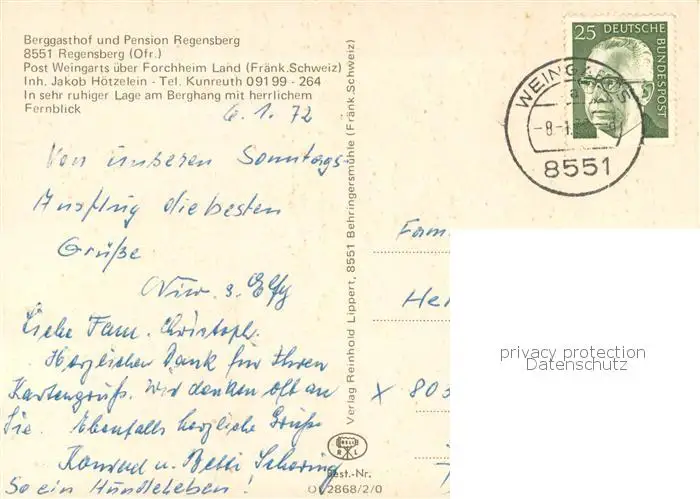 Berggasthof und Pension Regensberg
8551 Regensberg (Ofr.)
Post Weingarts über Forchheim Land (Fränk.Schweiz)
Inh. Jakob Hötzelein - Tel. Kunreuth 09199 - 264
In sehr ruhiger Lage am Berghang mit herrlichem
Fernblick
6.1.72
Von unseren Sonntags-
Ausflug die besten
Grüße
Elfy
Liebe Fam. Christoph.
Herzlichen Dank für Ihren
Kartengruß. Wir denken oft an
Sie. Ebenfalls herzliche Grüße
Konrad u. Betti
So ein Hundeleben!
Verlag Reinhold Lippert, 8551 Behringersmühle (Fränk.Schweiz)
Best.-Nr.
2868/2/0
25 DEUTSCHE
BUNDESPOST
WEINGARTS
a
8551
Fam
He
X 80
privacy protection
Datenschutz